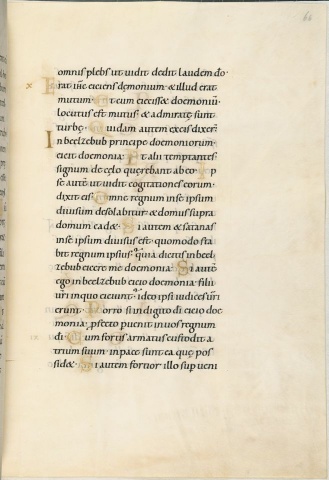 66
omnis plebs ut uidit dedit laudem dō.
x Erat iħc eiciens dęmonium. & illud erat
mutum. Et cum eiecisset doemoniū.
locutus est mutus. & admiratę sunt
turbę. Quidam autem ex eis dixerт̄
In beelzebub principe doemoniorum
eicit doemonia. Et alii temptantes
signum de cęlo quęrebant ab eo. Ip
se autē ut uidit cogitationes eorum.
dixit eis. Omne regnum in se ipsum
diuisum desolabitur & domus supra
domum cadet. Si autem & satanas
in se ipsum diuisus est. quomodo sta
bit regnum ipsius? quia dicitis in beel
zebub eicere me doemonia. Si autē
ego in beelzebub eicio doemonia. filii
uestri in quo eiciunt. ideo ipsi iudices uīri
erunt. Porro si in digito dī eicio doe
monia. profecto peruenit in uos regnum
dī. Cum fortis armatus custodit a
trium suum. in pace sunt ea quę pos
sidet. Si autem fortior illo superueni